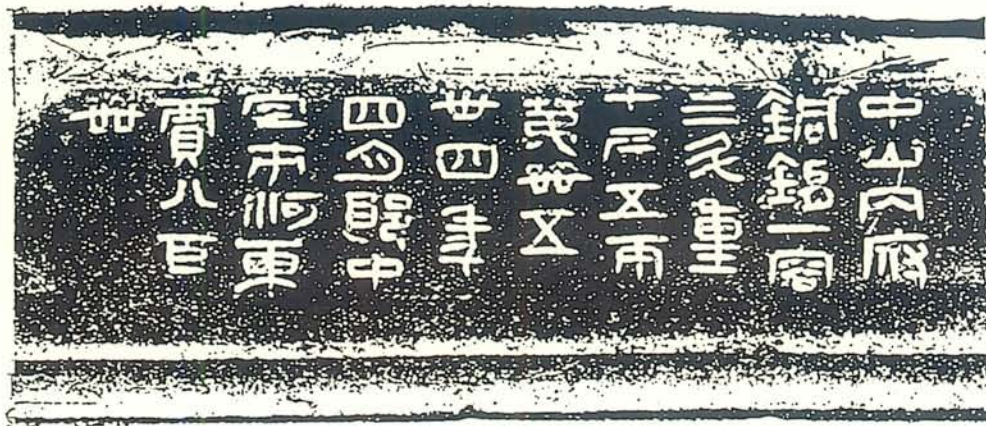 中山内府
銅鋗一容
三斗重
七斤五兩
第卌五
卅四年
四月郎中
定市河東
賈八百
卌